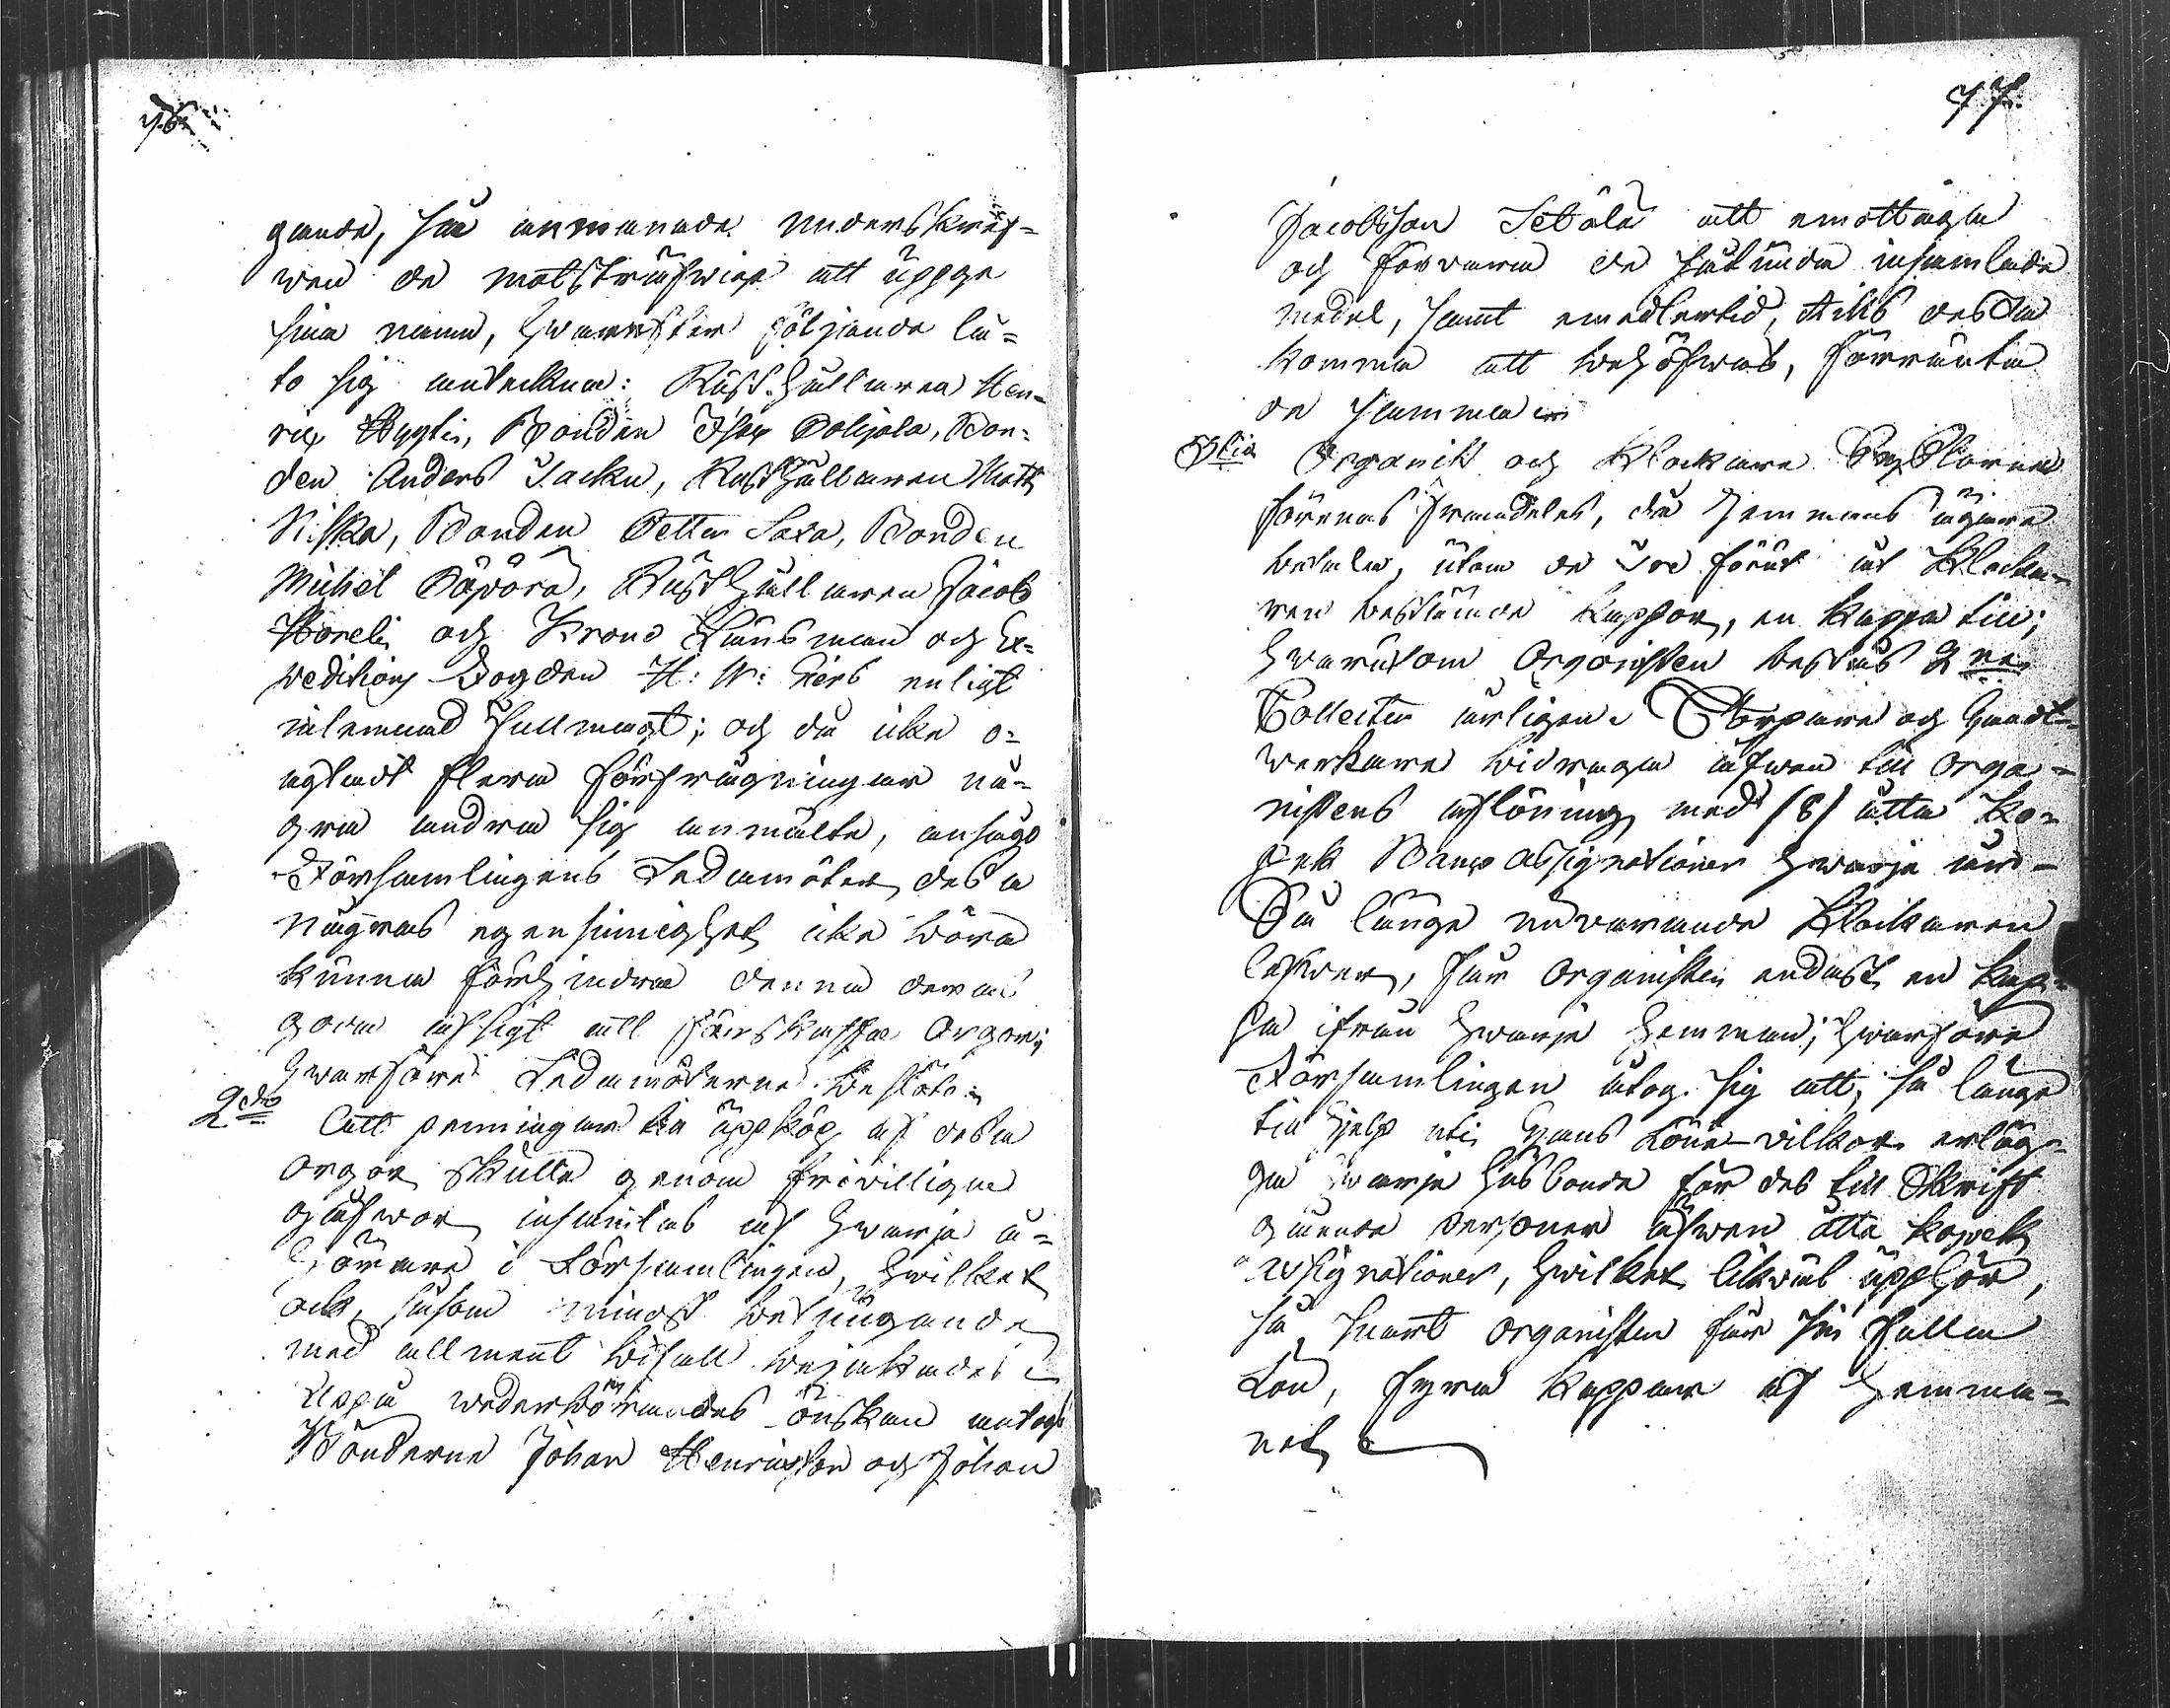 76
gande, så anmanade underskref-
wen de motsträfwige att uppge
sina namn, hwarefter följande lä-
to sig anteckna: Rusthållaren Hen-
ric Hygli, Bonden Isac Pohjola, Bon-
den Anders Jacku, Rusthållaren Matts
Niska, Bonden Petter Saxa, Bonden
Michel Päpörä, Rusthållaren Jacob
Horeli och Krono Länsman och Ex-
peditions Fogden H: W: Giers enligt
inlemnad fullmagt; och då icke o-
agtadt flera förfrågningar nå-
gra andra sig anmälte, ansågo
Församlingens Ledamöter dessa
någras egensinnighet icke böra
kunna förhindra denna deras
goda afsigt att förskaffa Orgor;
hwarföre Ledamöterne beslöto:
2do Att penningar till uppköp af dessa
orgor skulle genom friwilliga
gåfwor insamlas af hwarje å-
hörare i Församlingen, hwilket
ock, såsom minst betungande
med allment bifall bejakades.
Uppå wederbörandes önskan antogs
Bönderne Johan Henricsson och Johan
77
Jacobsson Setälä att emottaga
och förvara de sålunda insamlade
medel, samt emedlertid, tills dessa
komma att behöfwas, förränta
de samma
3tio Organist och Klockare Sysslorna
förenas framdeles, då Hemmans ägare
betala, utom de tre förut åt Klocka-
ren bestämde kappor, en kappa till;
hwarutom Organisten bestås 2ne
Collecter årligen. Torpare och Handt-
werkare bidraga äfwen till Orga-
nistens aflöning med /8/ åtta Ko-
pek Banco Assignationer hwarje under-
Så länge nuvarande Klockaren
lefwer, får Organisten endast en kap-
pa ifrån hwarje Hemman; hwarföre
Församlingen åtog sig att, så länge
till hjelp uti hans Löne-vilkor erläg-
ga hwarje husbonde för des till Skrift
gående personer äfwen åtta kopek
assignationer, hwilket likväl upphör,
så snart Organisten får sin fulla
Lön, fyra kappar af Hemma-
net